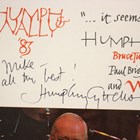 HUMPH
'83
Mike
all the best!
Humphrey Lyttelton
"...it seems
HUMPH
Bruce Tu
Paul Brid
and